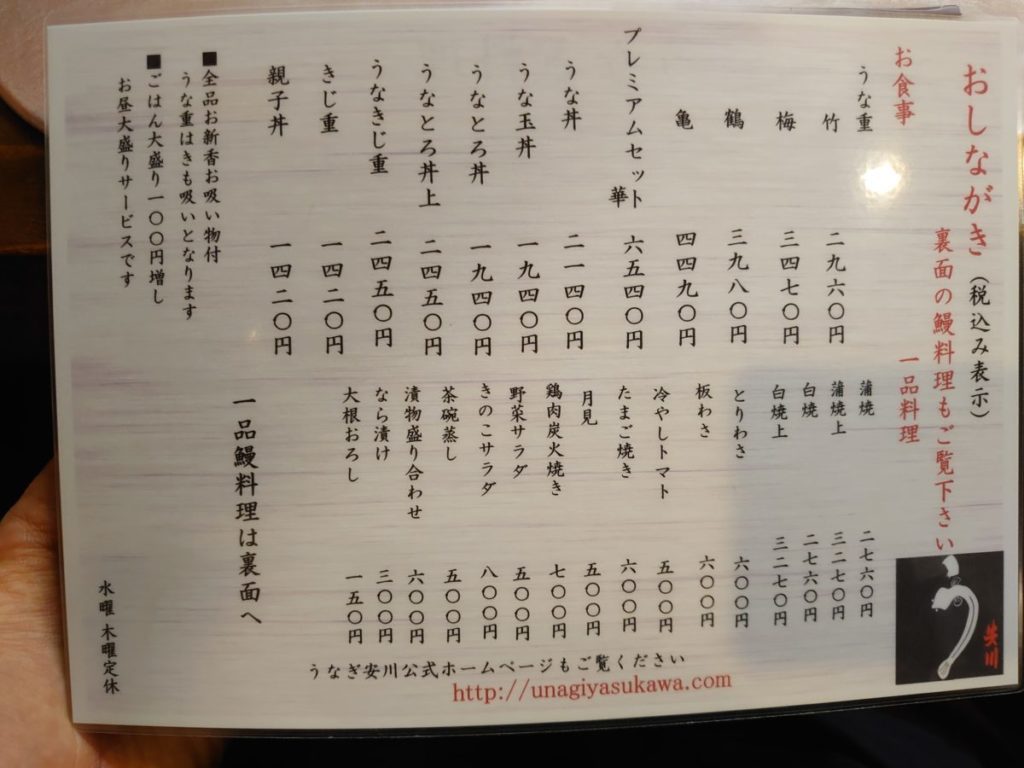 おしながき（税込み表示）
裏面の鰻料理もご覧下さい
お食事
うな重
竹 二九六〇円
梅 三四七〇円
鶴 三九八〇円
亀 四四九〇円
プレミアムセット
華 六五四〇円
うな丼 二一四〇円
うな玉丼 一九四〇円
うなとろ丼 一九四〇円
うなとろ丼上 二四五〇円
うなきじ重 二四五〇円
きじ重 一四二〇円
親子丼 一四二〇円
■全品お新香お吸い物付
うな重はきも吸いとなります
■ごはん大盛り一〇〇円増し
お昼大盛りサービスです
一品料理
蒲焼 二七六〇円
蒲焼上 三二七〇円
白焼 二七六〇円
白焼上 三二七〇円
とりわさ 六〇〇円
板わさ 六〇〇円
冷やしトマト 五〇〇円
たまご焼き 六〇〇円
月見 五〇〇円
鶏肉炭火焼き 七〇〇円
野菜サラダ 五〇〇円
きのこサラダ 八〇〇円
茶碗蒸し 五〇〇円
漬物盛り合わせ 六〇〇円
なら漬け 三〇〇円
大根おろし 一五〇円
一品鰻料理は裏面へ
水曜木曜定休
うなぎ安川公式ホームページもご覧ください
http://unagiyasukawa.com
う
安川